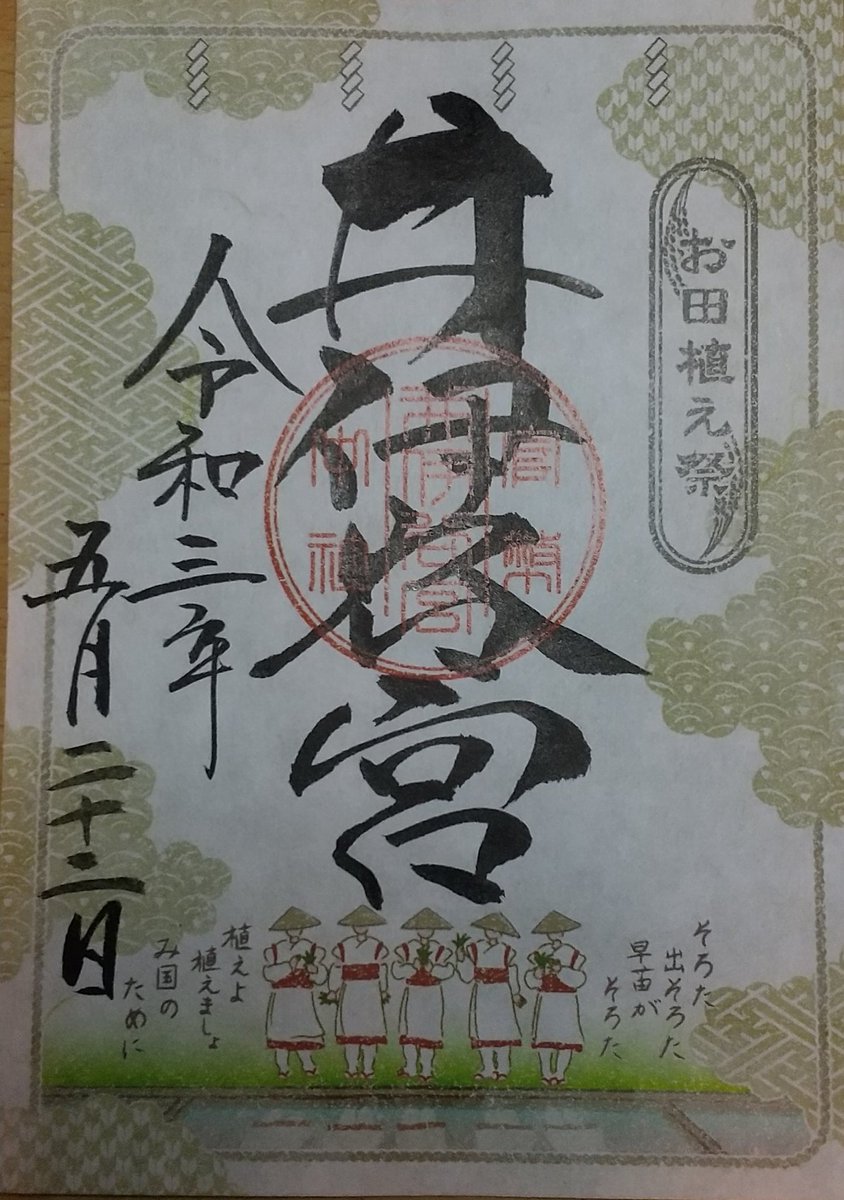 お田植え祭
井伊谷宮
官幣
井伊谷宮
令和三年
五月二十二日
そろた
出そろた
早苗が
そろた
植えよ
植えましょ
み国の
ために